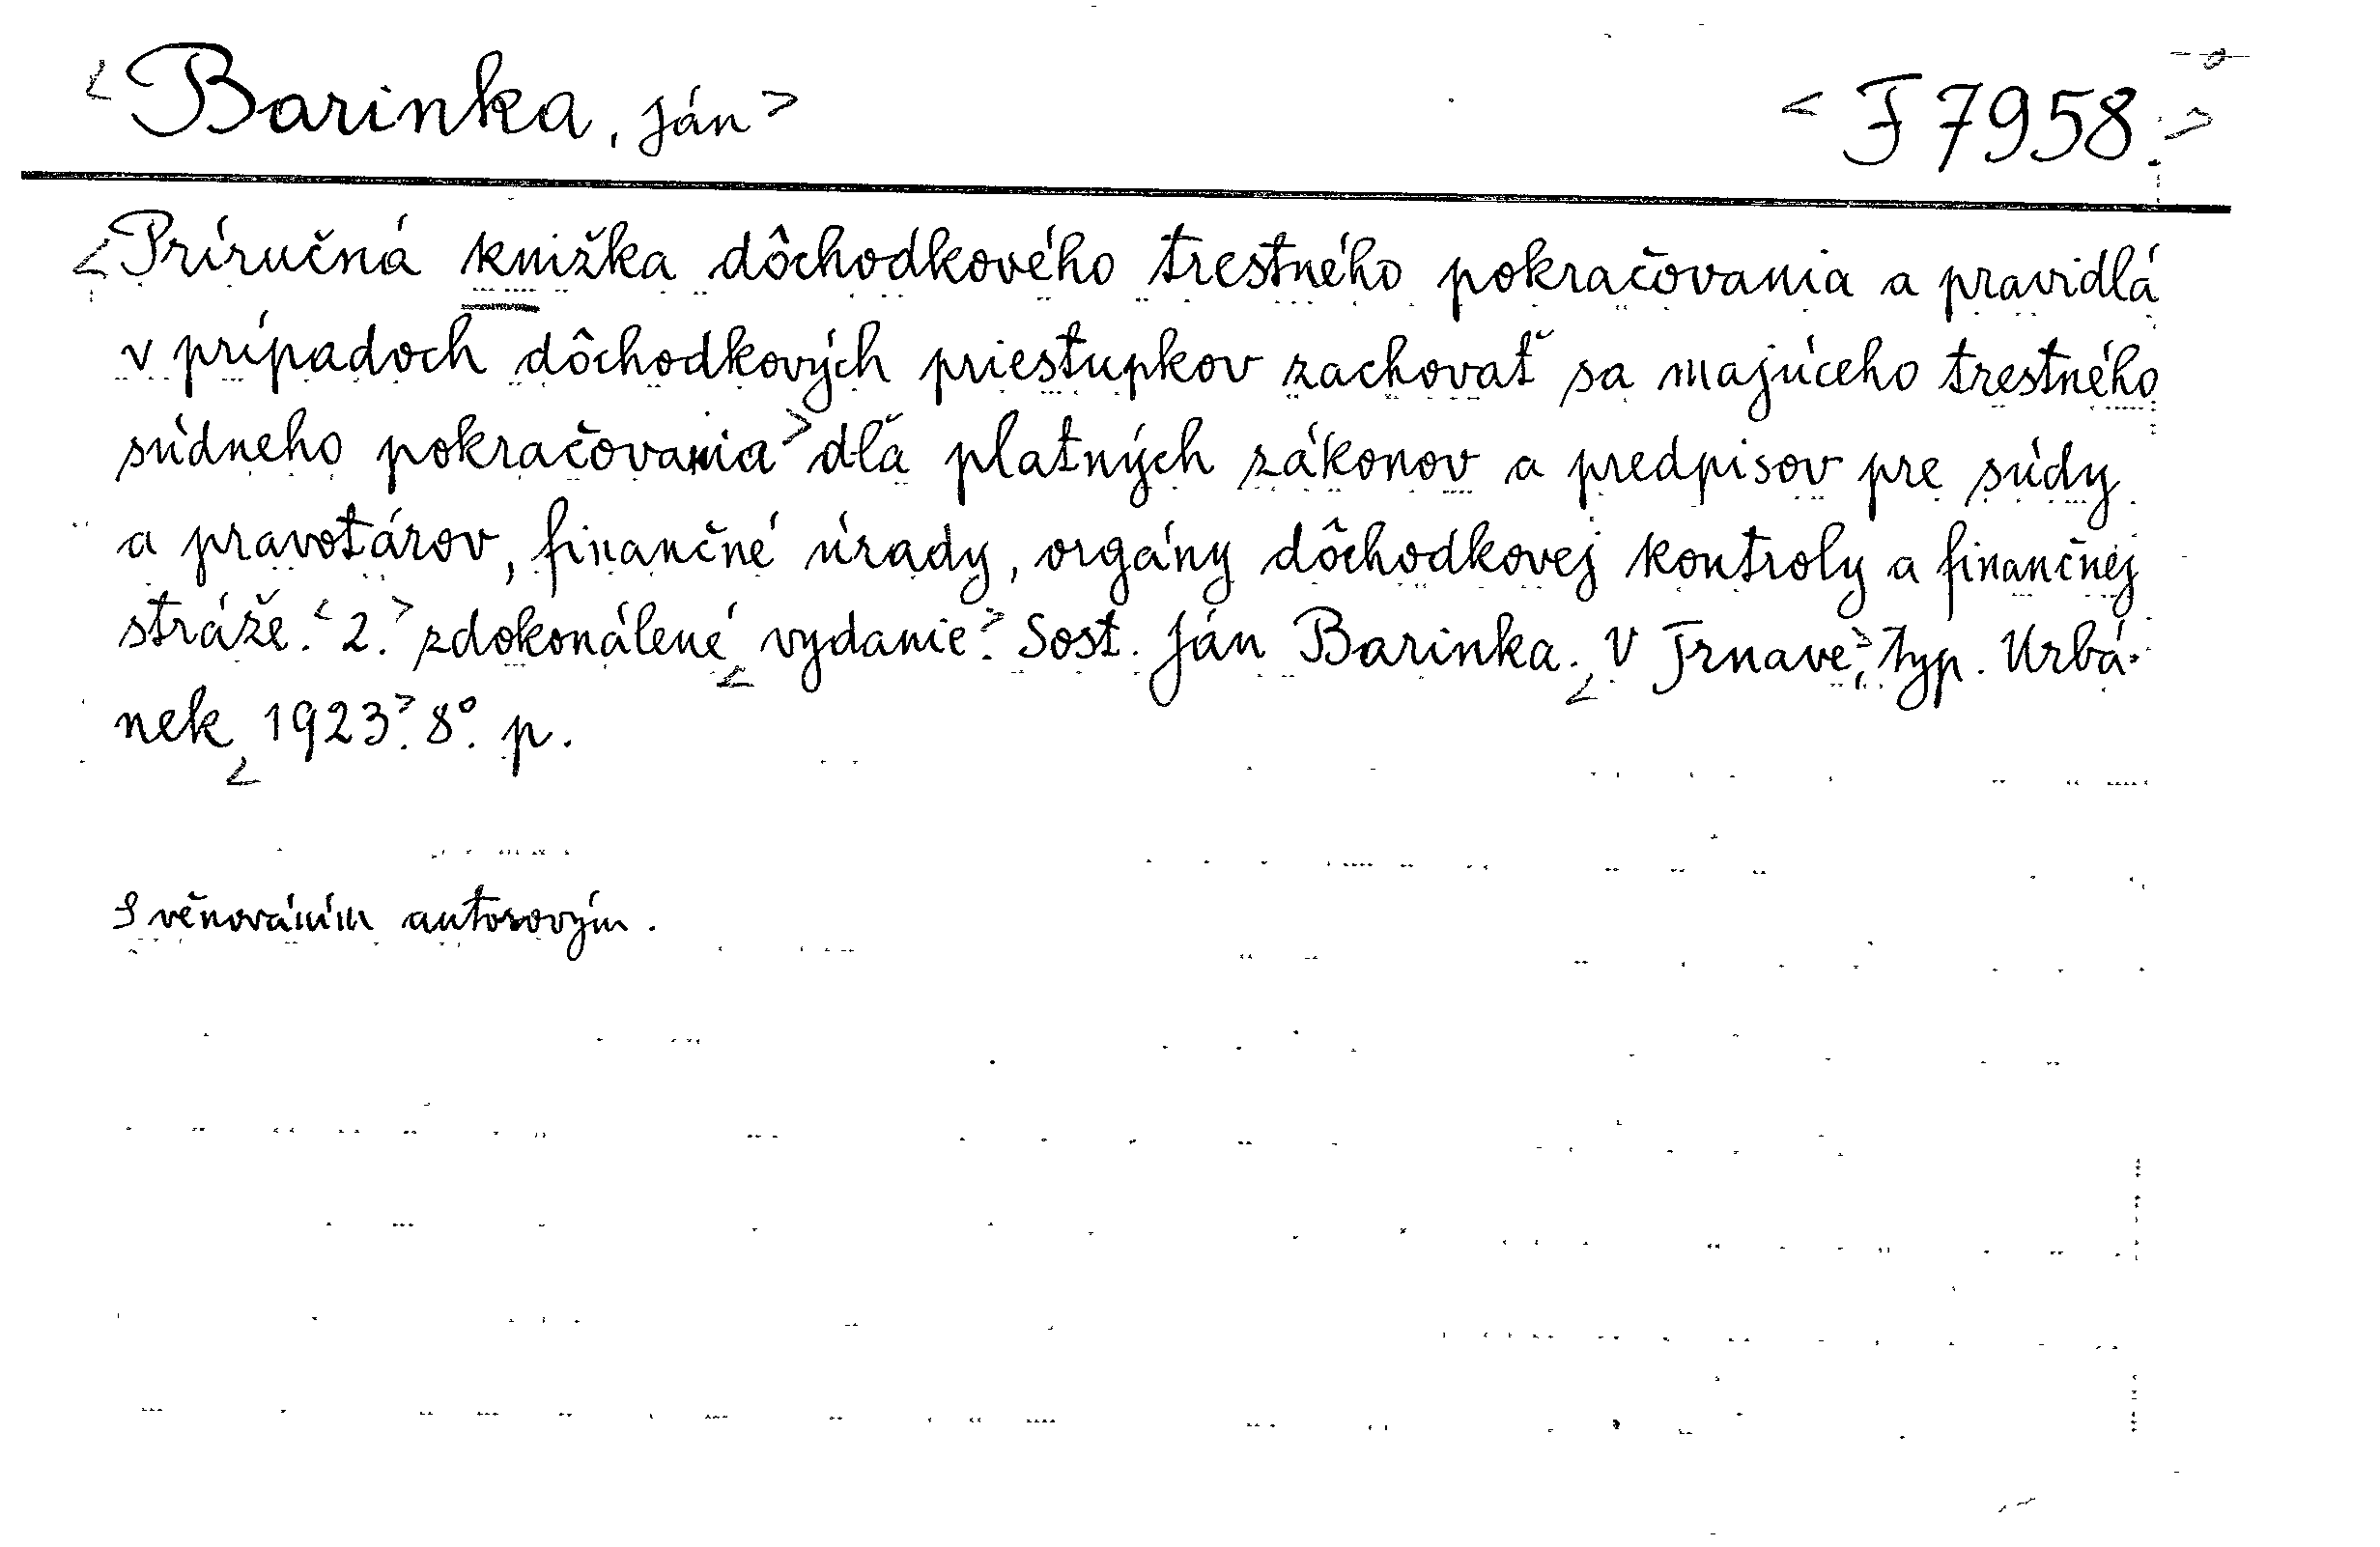 <Barinka, Ján> <F 7958.>
<Príručná knižka dôchodkového trestného pokračovania a pravidlá
v prípadoch dôchodkových priestupkov zachovať sa majúceho trestného
súdneho pokračovania> dľa platných zákonov a predpisov pre súdy
a pravotárov, finančné úrady, orgány dôchodkovej kontroly a finančnej
stráže. <2.> zdokonálené <vydanie>. Sost. Ján Barinka. <V Trnave>, typ. Urbá-
nek <1923>. 8°. p.
S věnováním autorovým.